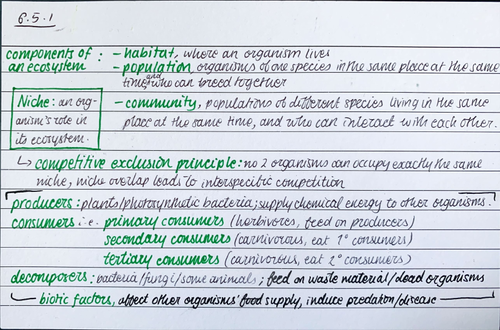 6.5.1
components of an ecosystem: - habitat, where an organism lives
- population, organisms of one species in the same place at the same
time, and who can breed together
Niche: an org-
anism's role in
its ecosystem.
- community, populations of different species living in the same
place at the same time, and who can interact with each other.
↳ competitive exclusion principle: no 2 organisms can occupy exactly the same
niche, niche overlap leads to interspecific competition
producers: plants/photosynthetic bacteria; supply chemical energy to other organisms.
consumers i.e. primary consumers (herbivores, feed on producers)
secondary consumers (carnivorous, eat 1° consumers)
tertiary consumers (carnivorous, eat 2° consumers)
decomposers: bacteria/fungi/some animals; feed on waste material/dead organisms
biotic factors, affect other organisms' food supply, induce predation/disease